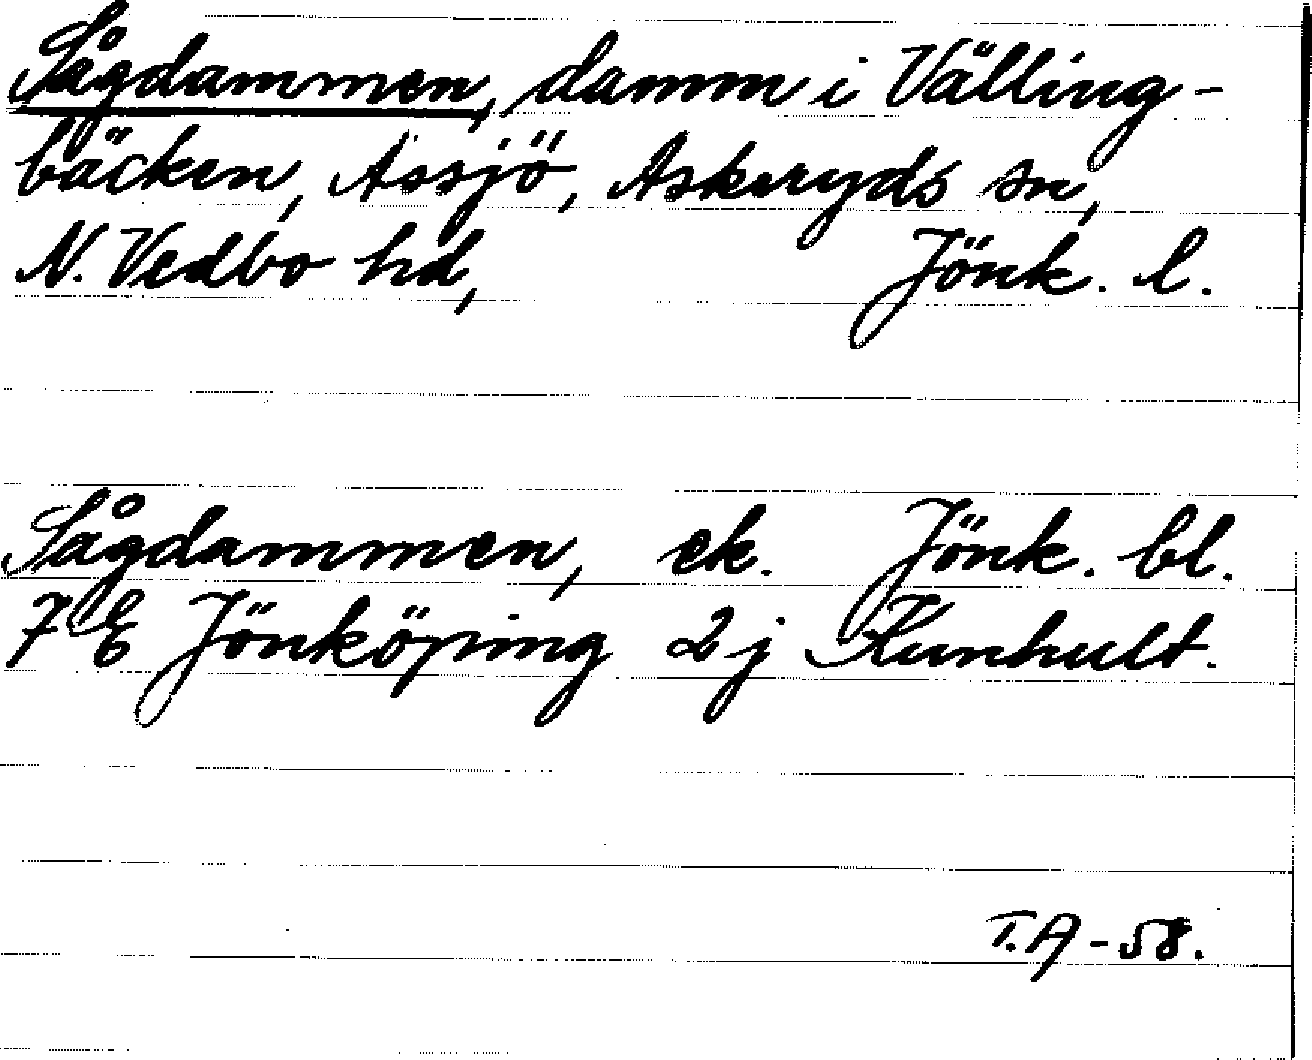 Sågdammen, damm i Välling-
bäcken, Assjö, Askeryds sn,
N. Vedbo hd, Jönk. l.
Sågdammen, ek. Jönk. bl.
7 E Jönköping 2 j Kunhult.
T.A - 58.